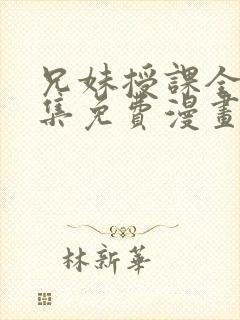 兄妹授課全
集免費漫畫
林新華